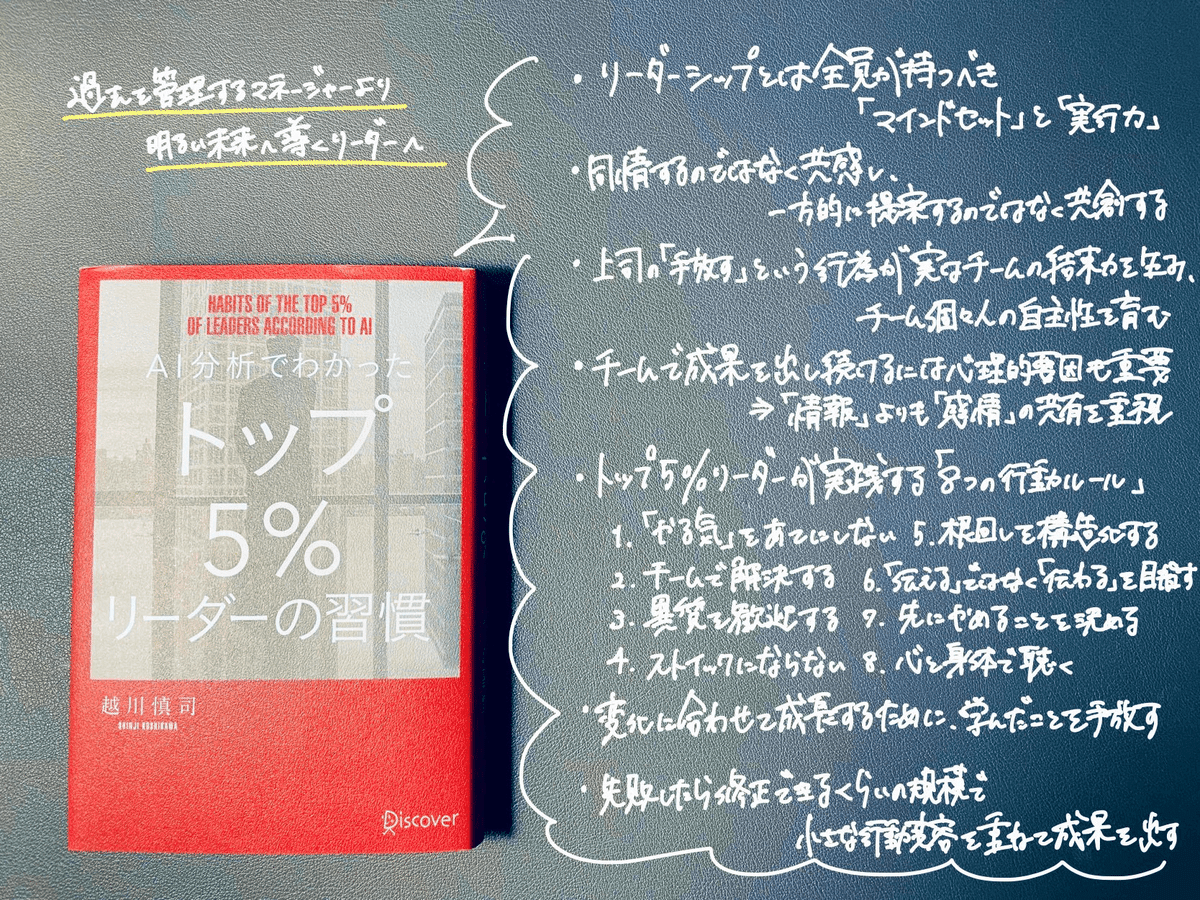 過去を管理するマネージャーより
明るい未来へ導くリーダーへ
HABITS OF THE TOP 5%
OF LEADERS ACCORDING TO AI
AI分析でわかった
トップ
5%
リーダーの習慣
越川慎司
SHINJI KOSHIKAWA
Discover
・リーダーシップとは全員が持つべき
「マインドセット」と「実行力」
・同情するのではなく共感し、
一方的に提案するのではなく共創する
・上司の「手放す」という行為が実はチームの結束力を生み、
チーム個々人の自主性を育む
・チームで成果を出し続けるには心理的要因も重要
⇒「情報」よりも「感情」の共有を重視
・トップ5%リーダーが実践する「8つの行動ルール」
1.「やる気」をあてにしない 5.根回しを構造化する
2.チームで解決する 6.「伝える」ではなく「伝わる」を目指す
3.異質を歓迎する 7.先にやめることを決める
4.ストイックにならない 8.心と身体で聴く
・変化に合わせて成長するために、学んだことを手放す
・失敗したら修正できるくらいの規模で
小さな行動変容を重ねて成果を出す